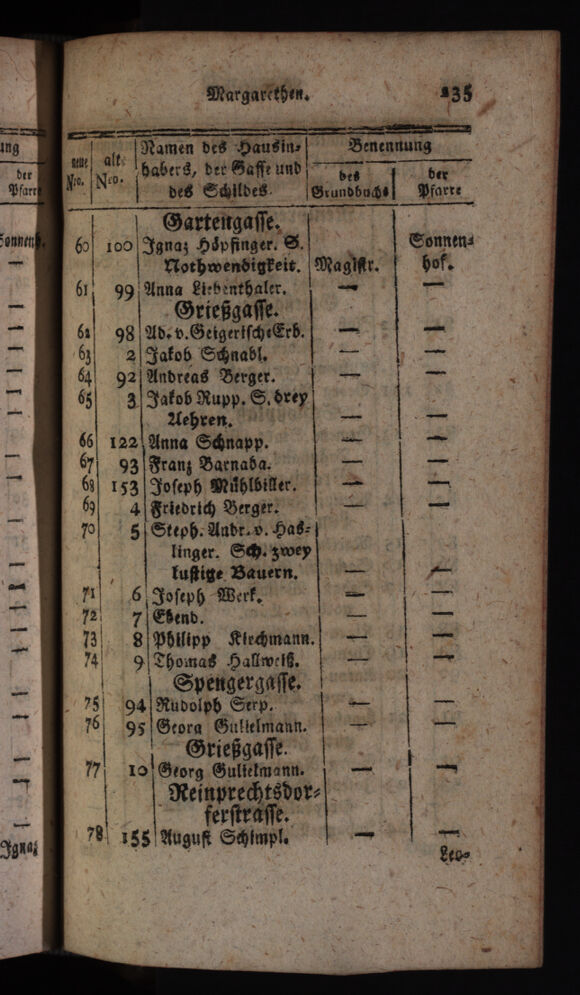 ung
der
Pfarre
Sonnenh.
—
Ignaz
Margarethen. 235
neue Nro. | alte Nro. | Namen des Hausin- | Benennung
habers, der Gasse und | des | der
des Schildes. | Grundbuchs | Pfarre
Gartengasse.
60 100 Ignaz Höpfinger. S. Sonnen-
Nothwendigkeit. Magistr. hof.
61 99 Anna Liebenthaler. — —
Grießgasse.
62 98 Ad. v. Geigerische Erb. — —
63 2 Jakob Schnabl. — —
64 92 Andreas Berger. — —
65 3 Jakob Rupp. S. drey
Aehren. — —
66 122 Anna Schnapp. — —
67 93 Franz Barnaba. — —
68 153 Joseph Mühlbiller. — —
69 4 Friedrich Berger. — —
70 5 Steph. Andr. v. Has-
linger. Sch. zwey
lustige Bauern. — —
71 6 Joseph Werk. — —
72 7 Ebend. — —
73 8 Philipp Kirchmann. — —
74 9 Thomas Hallweiß. — —
Spengergasse.
75 94 Rudolph Serp. — —
76 95 Georg Gulielmann. — —
Grießgasse.
77 10 Georg Gulielmann. — —
Reinprechtsdor-
ferstrasse.
78 155 August Schimpl. — —
Leo-